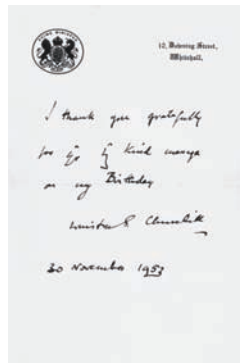 10, Downing Street,
Whitehall.
I thank you gratefully
for yr kind message
on my Birthday
Winston S. Churchill
30 November 1953